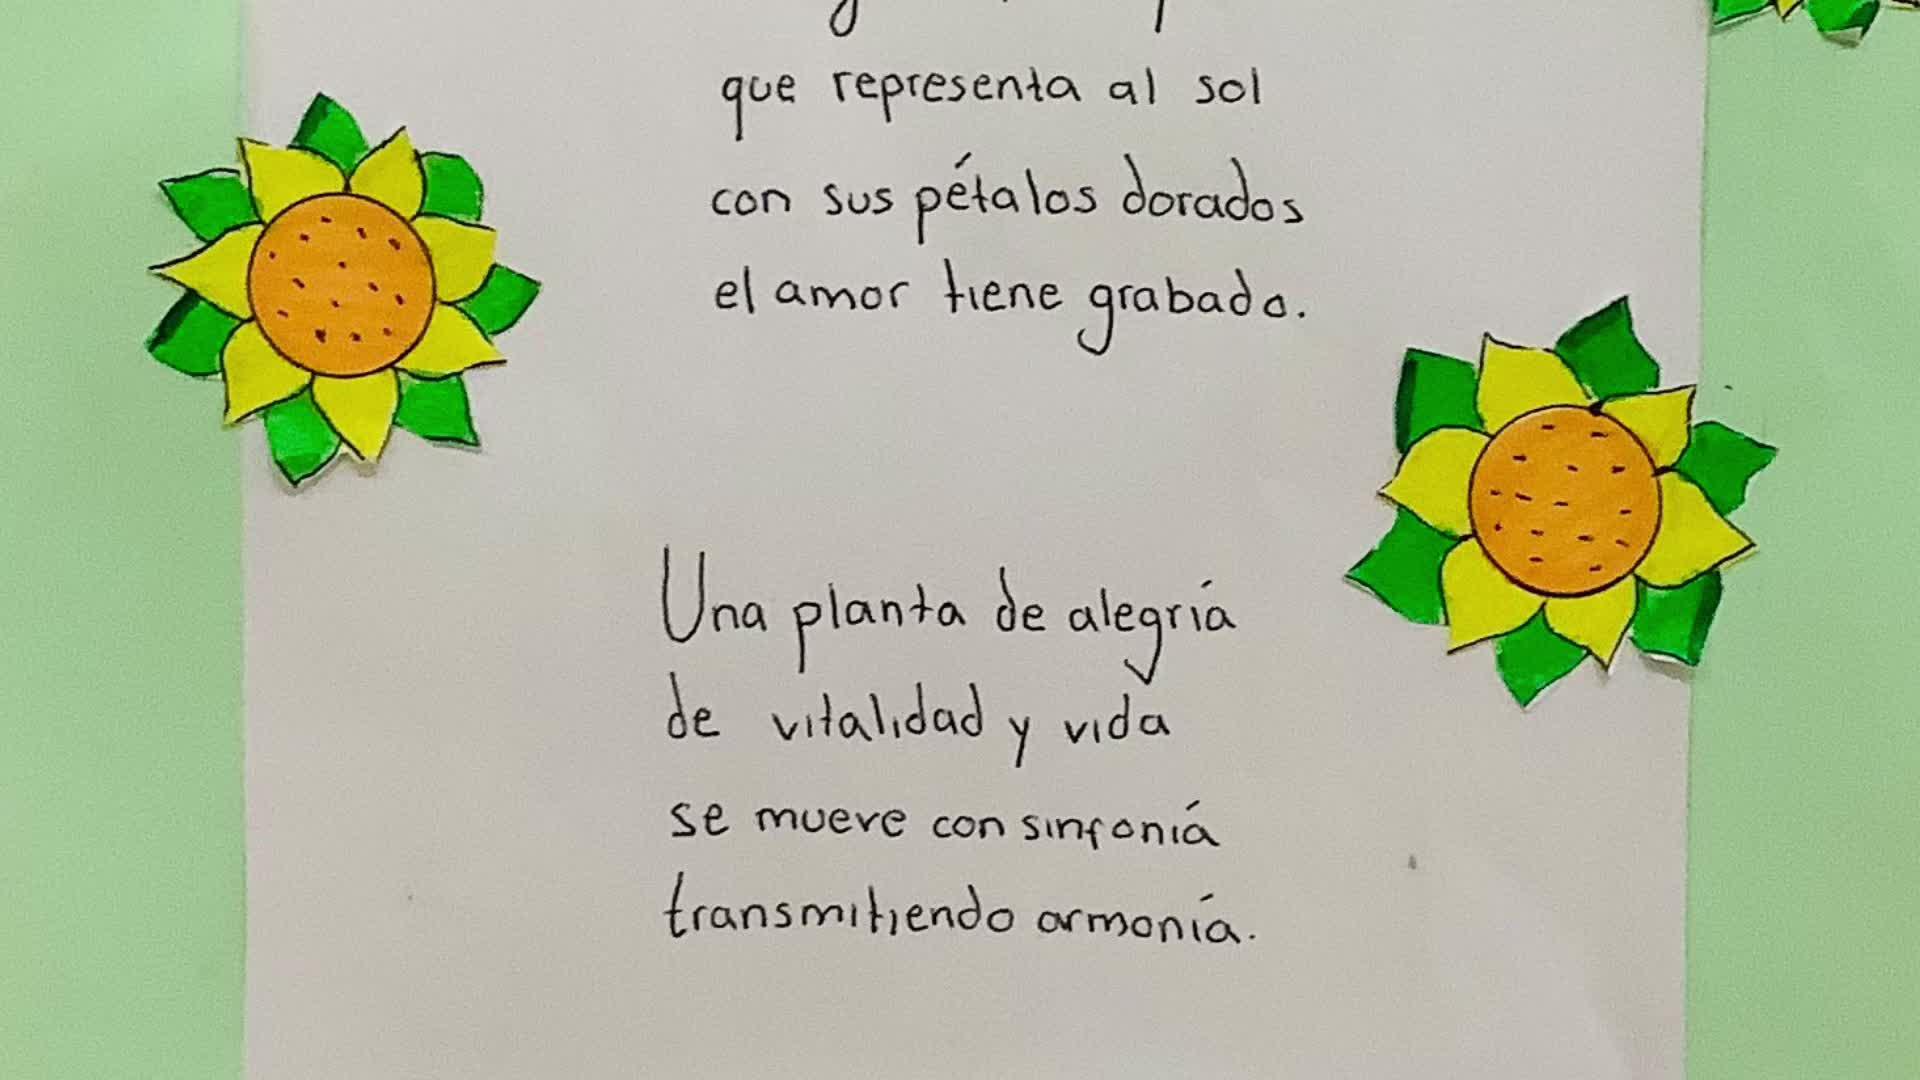 que representa al sol
con sus pétalos dorados
el amor tiene grabado.
Una planta de alegría
de vitalidad y vida
se mueve con sinfonía
transmitiendo armonía.